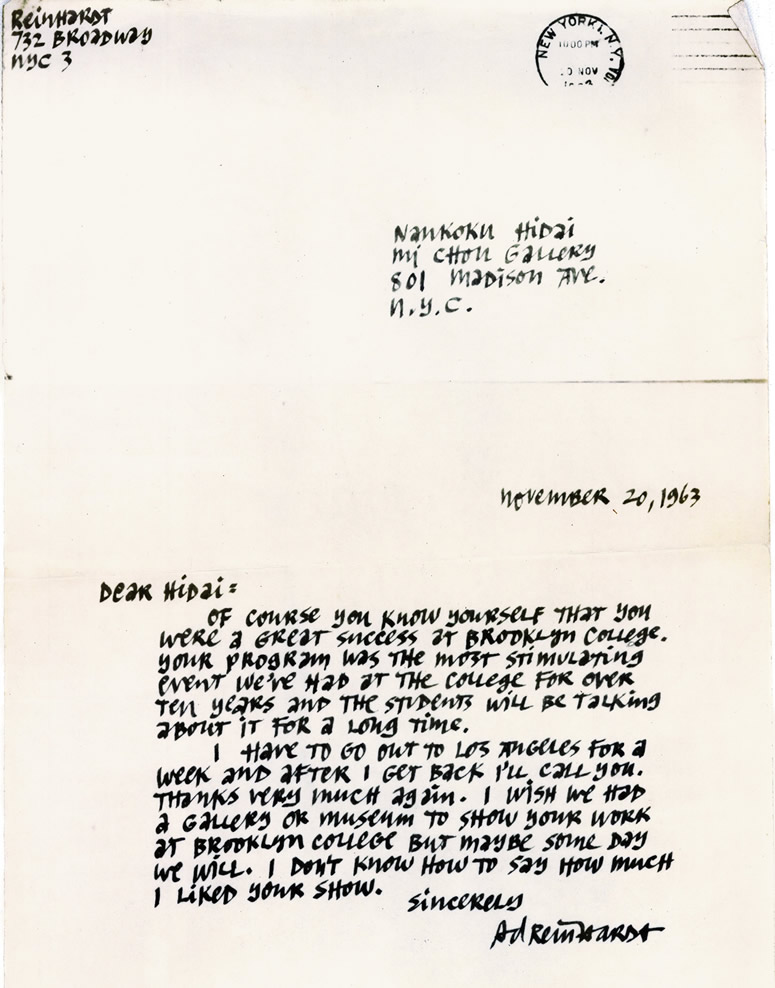 Reinhardt
732 Broadway
NYC 3
NEW YORK 1, N.Y.
10:00 PM
NOV
Nankoku Hidai
Mi Chou Gallery
801 Madison Ave.
N.Y.C.
November 20, 1963
Dear Hidai:
Of course you know yourself that you
were a great success at Brooklyn College.
Your program was the most stimulating
event we've had at the college for over
ten years and the students will be talking
about it for a long time.
I have to go out to Los Angeles for a
week and after I get back I'll call you.
Thanks very much again. I wish we had
a gallery or museum to show your work
at Brooklyn College but maybe some day
we will. I don't know how to say how much
I liked your show.
Sincerely
Ad Reinhardt